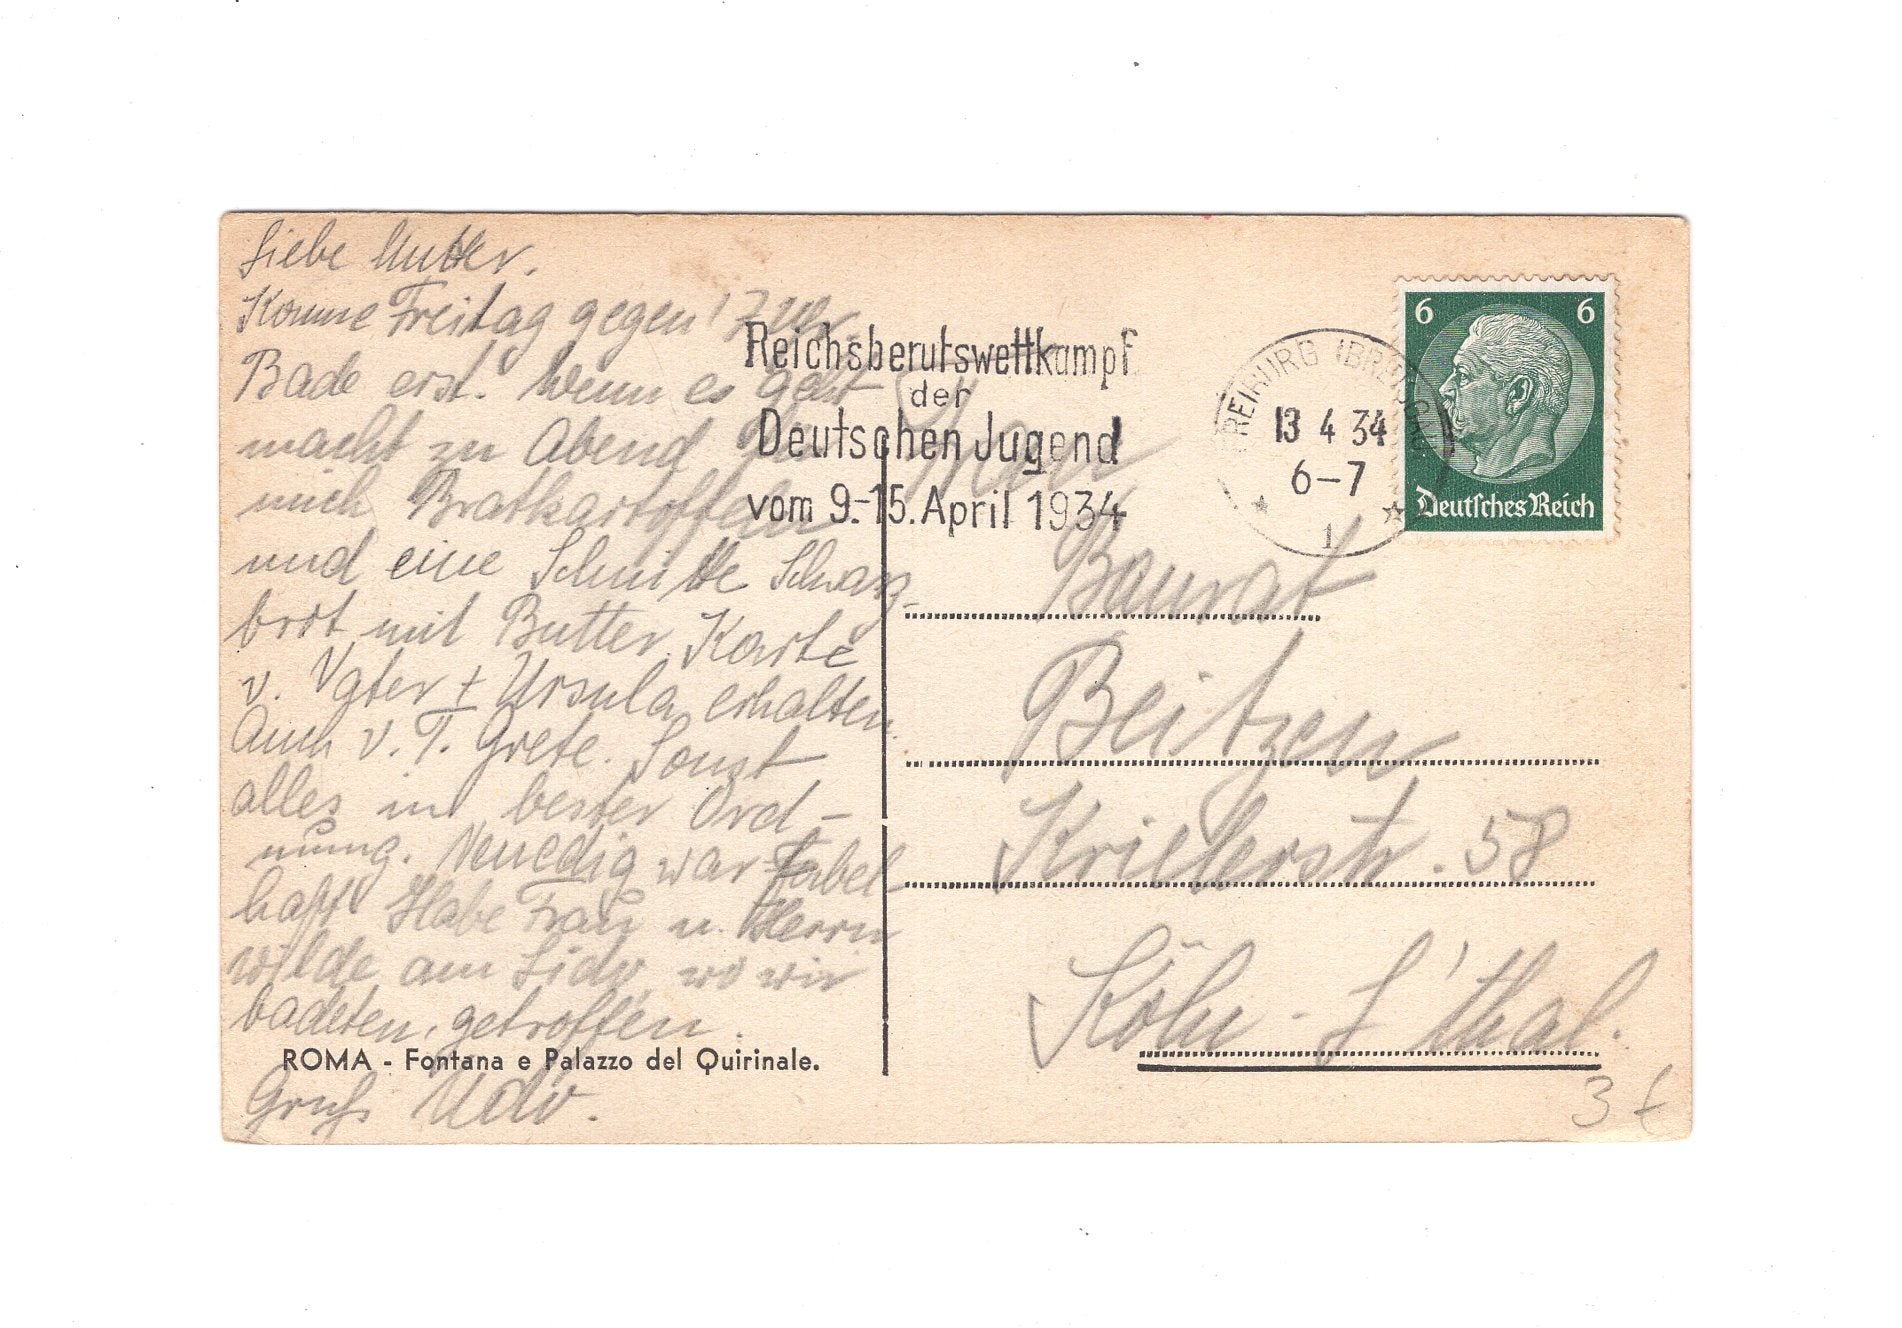 Liebe Mutter.
Komme Freitag gegen 17 Uhr.
Bade erst. Wenn es geht
macht zu Abend für
mich Bratkartoffeln
und eine Schnitte Schwarz-
brot mit Butter. Karte
v. Vater + Ursula erhalten.
Auch v. T. Grete. Sonst
alles in bester Ord-
nung. Venedig war Fabel-
haft Habe Frau u. Herrn
wilde am Lido, wo wir
badeten, getroffen.
ROMA - Fontana e Palazzo del Quirinale.
Gruß Udo.
Reichsberufswettkampf
der
Deutschen Jugend
vom 9.-15. April 1934
FREIBURG (BREISGAU)
13 4 34
6-7
1
6 6
Deutsches Reich
Frau
Baurat
Beitzen
Krielerstr. 58
Köln-L'thal.
3 €